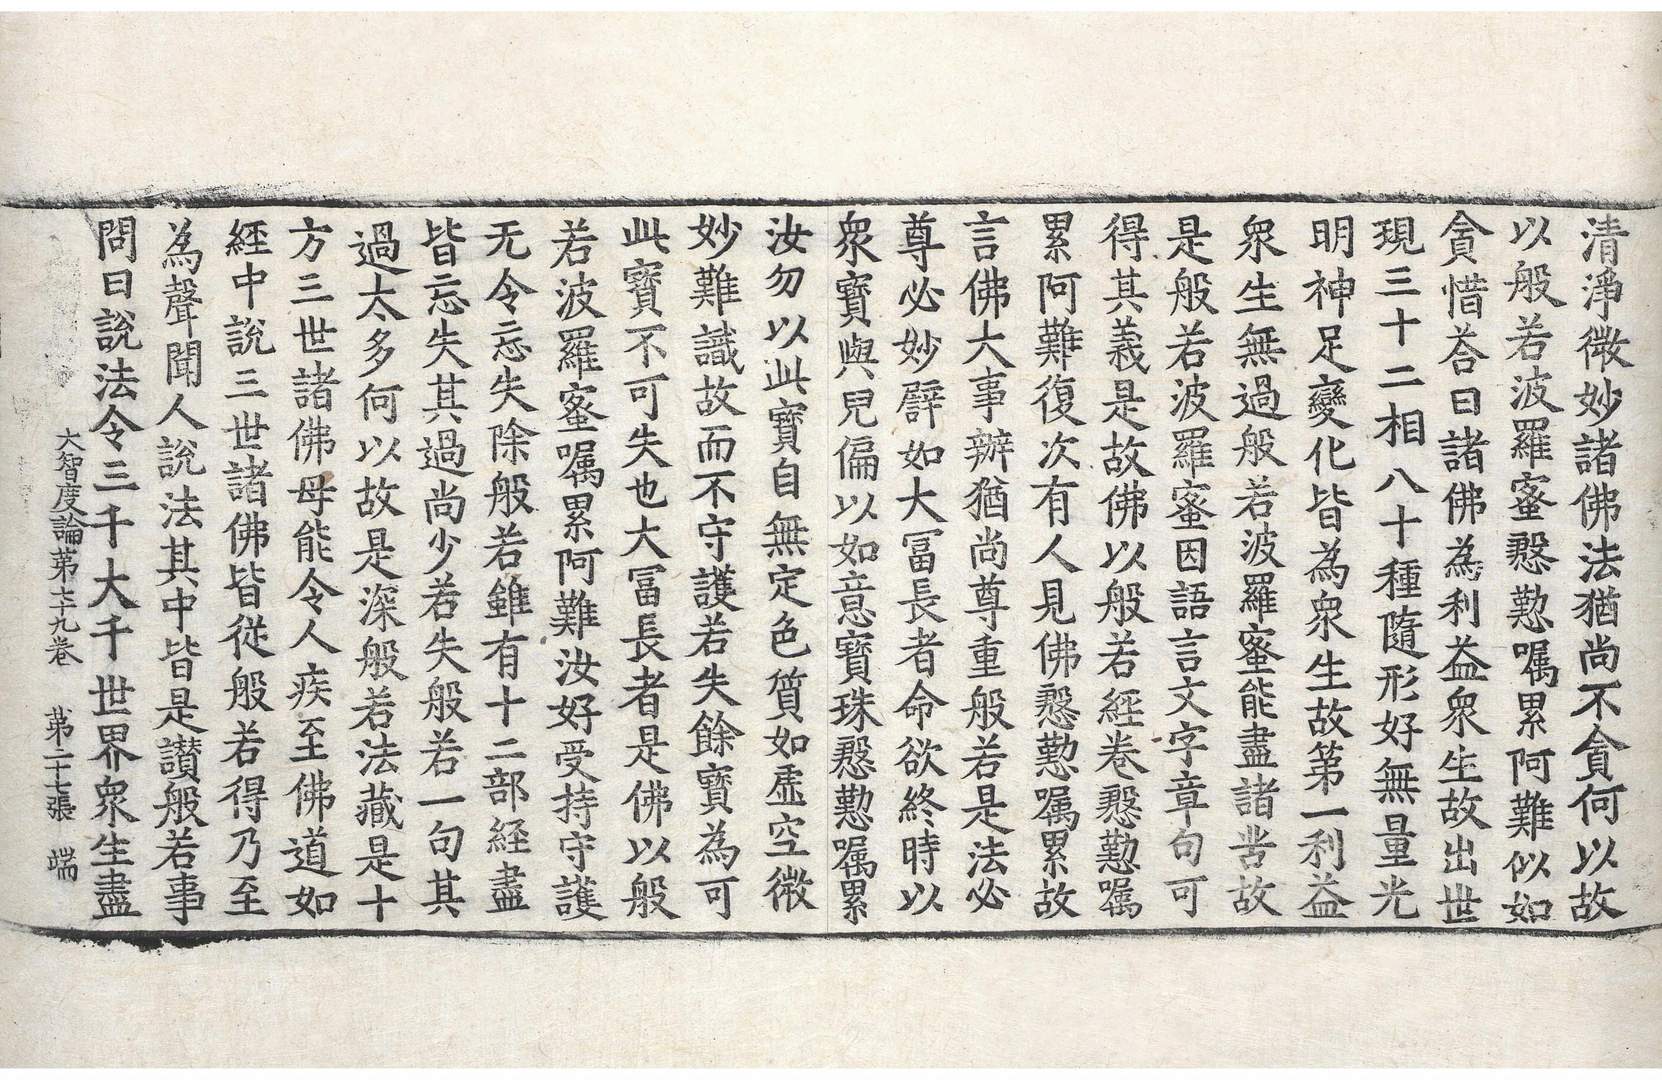 清淨微妙諸佛法猶尚不貪何以故
以般若波羅蜜慇懃嘱累阿難似如
貪惜荅曰諸佛為利益衆生故出世
現三十二相八十種隨形好無量光
明神足變化皆為衆生故第一利益
衆生無過般若波羅蜜能盡諸苦故
是般若波羅蜜因語言文字章句可
得其義是故佛以般若經卷慇懃嘱
累阿難復次有人見佛慇懃嘱累故
言佛大事辦猶尚尊重般若是法必
尊必妙譬如大冨長者命欲終時以
衆寶與兒偏以如意寶珠慇懃嘱累
汝勿以此寶自無定色質如虛空微
妙難識故而不守護若失餘寶為可
此寶不可失也大冨長者是佛以般
若波羅蜜嘱累阿難汝好受持守護
无令忘失除般若雖有十二部經盡
皆忘失其過尚少若失般若一句其
過太多何以故是深般若法藏是十
方三世諸佛母能令人疾至佛道如
經中說三世諸佛皆從般若得乃至
為聲聞人說法其中皆是讃般若事
問曰說法令三千大千世界衆生盡
大智度論第七十九卷 第二十七張 端